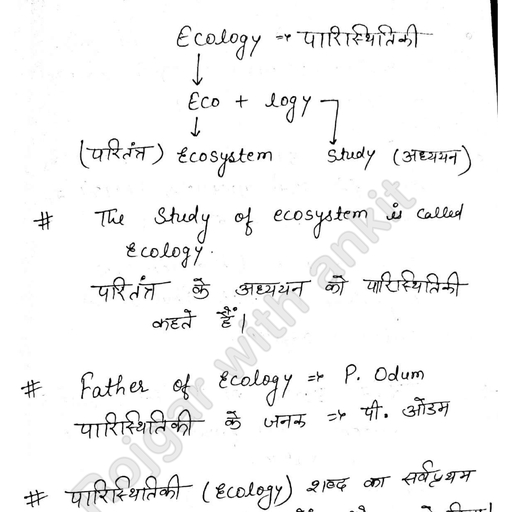 Ecology → पारिस्थितिकी
Eco + logy
(परितंत्र) Ecosystem Study (अध्ययन)
# The Study of ecosystem is called
Ecology.
परितंत्र के अध्ययन को पारिस्थितिकी
कहते हैं।
# Father of Ecology ⇒ P. Odum
पारिस्थितिकी के जनक ⇒ पी. ओडम
# पारिस्थितिकी (Ecology) शब्द का सर्वप्रथम
Rojgar with ankit